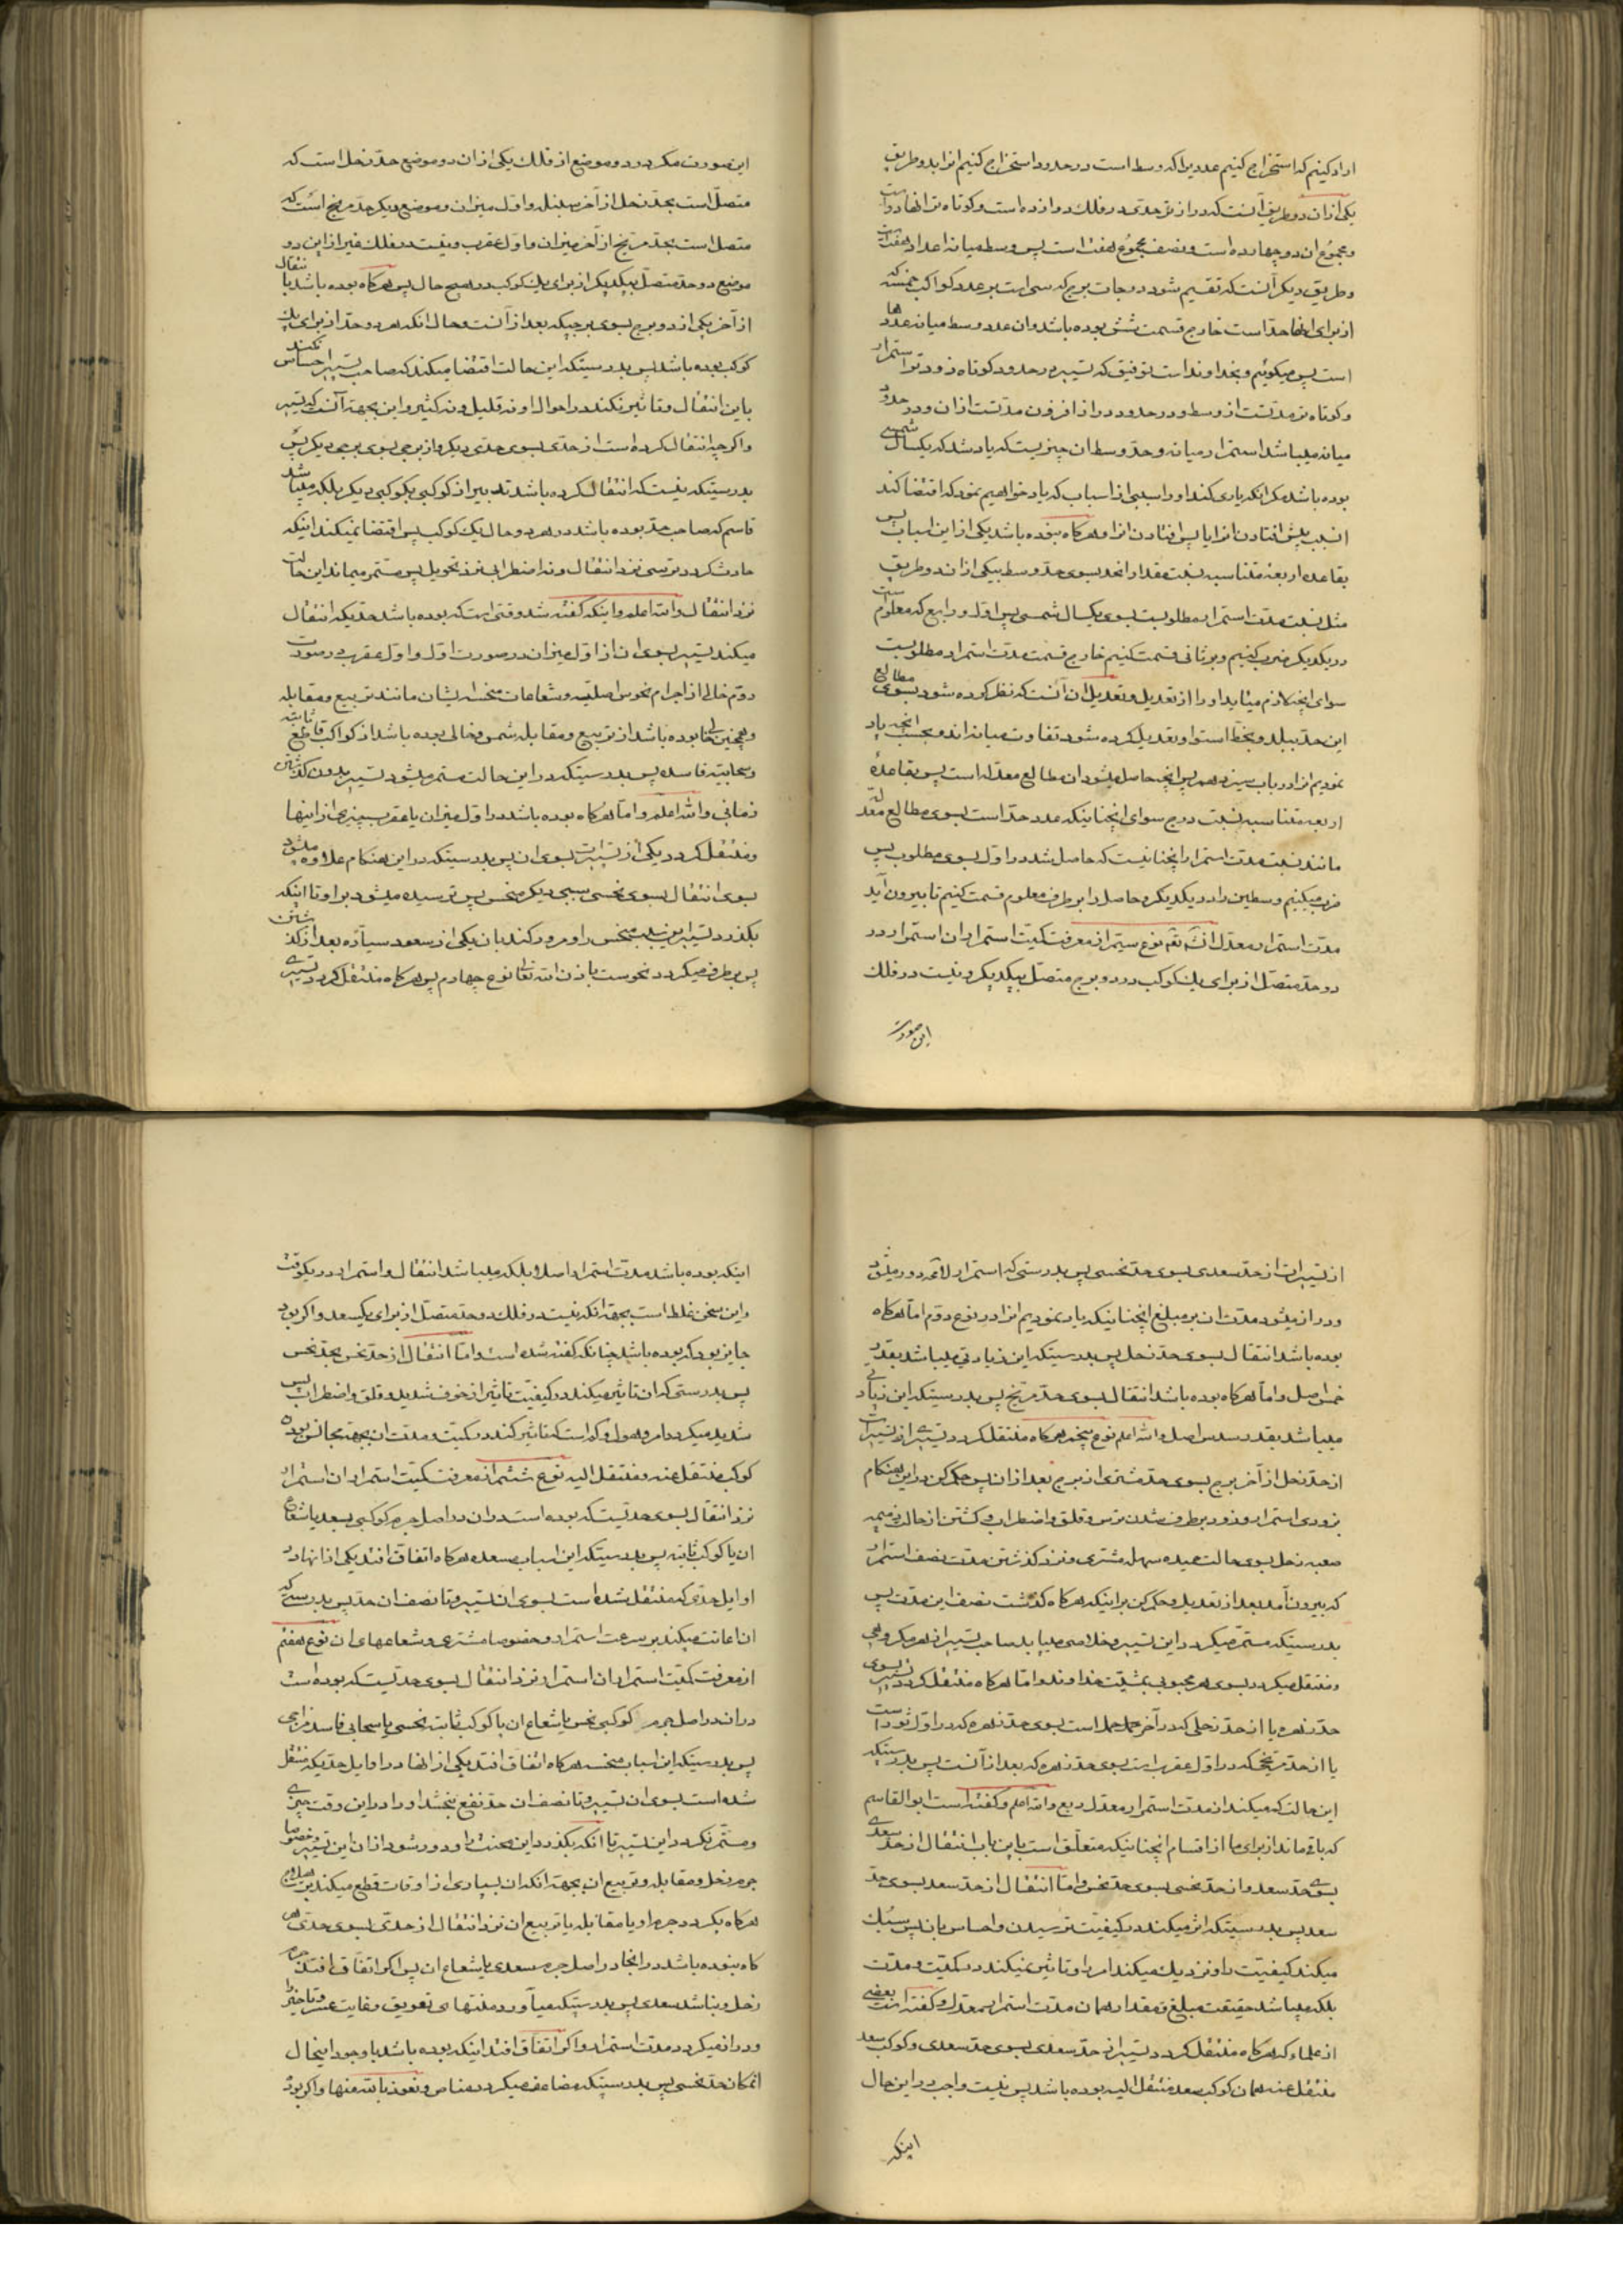 اراد کنیم که استخراج کنیم عددیرا که وسط است در حدود استخراج کنیم انرا بدو طریق
یکی از ان دو طریق آنست که درازتر حدی در فلک دوازده است و کوتاه تر انها دو است
و مجموع ان دو چهارده است و نصف مجموع هفت است پس وسط میانه اعداد هفت است
و طریق دیگر آنست که تقسیم شود درجات برج که سی است بر عدد کواکب خمسه که
از برای انها حد است خارج قسمت شش بوده باشد و ان عدد وسط میانه عددها
است پس میگوئیم و بخداوند است توفیق که تسییر در حدود کوتاه زودتر استمرار
و کوتاه تر مدتست از وسط و در حدود دراز افزون مدتست از ان و در حدود
میانه میباشد استمرار میانه و حد وسط ان چیزیست که یاد شد که یکسال شمسی
بوده باشد مگر انکه یاری کند او را سببی از اسباب که یاد خواهیم نمود که اقتضا کند
ان سبب پیش افتادن انرا یا پس افتادن انرا و هرگاه نبوده باشد یکی از این اسباب پس
بقاعده اربعه متناسبه نسبت مقدار انحد بسوی حد وسط بیکی از ان دو طریق
مثل نسبت مدت استمرار مطلوبست بسوی یکسال شمسی پس اول و رابع که معلوم است
در یکدیگر ضرب کنیم و بر ثانی قسمت کنیم خارج قسمت مدت استمرار مطلوبست
سوای انچه لازم میآید او را از تعدیل و تعدیل ان آنست که نظر کرده شود بسوی مطالع
این حد ببلد و بخط استوا و تعدیل کرده شود تفاوت میانه اندو بحسب انچه یاد
نمودیم انرا در باب سیزدهم پس انچه حاصل میشود ان مطالع معدله است پس بقاعده
اربعه متناسبه نسبت درج سوای انچنانیکه عدد حد است بسوی مطالع معدله
مانند نسبت مدت استمرار انچنانیست که حاصل شد در اول بسوی مطلوب پس
ضرب میکنیم وسطین را در یکدیگر و حاصل را بر طرف معلوم قسمت کنیم تا بیرون آید
مدت استمرار معدل انشاء الله تعالی نوع سیم از معرفت کمیت استمرار ان استمرار در
دو حد متصل از برای یک کوکب در دو برج متصل بیکدیگر و نیست در فلک
این صورت
این صورت مکر در دو موضع از فلک یکی از ان دو موضع حد زحل است که
متصل است بحد زحل از آخر سنبله و اول میزان و موضع دیگر حد مریخ است که
متصل است بحد مریخ از آخر میزان و اول عقرب و نیست در فلک غیر از این دو
موضع دو حد متصل بیکدیگر از برای یک کوکب در هیچ حال پس هرگاه بوده باشد انتقال
از آخر یکی از دو برج بسوی برجیکه بعد از آنست و حال انکه هر دو حد از برای یک
کوکب بوده باشد پس بدرستیکه این حالت اقتضا میکند که صاحب تسییر احساس نکند
باین انتقال و تاثیر نکند در احوال او نه قلیل و نه کثیر و این بجهة آنست که تسییر
و اگرچه انتقال کرده است از حدی بسوی حدی دیگر و از برجی بسوی برجی دیگر پس
بدرستیکه نیست که انتقال کرده باشد تدبیر از کوکبی بکوکبی دیگر بلکه میباشد
قاسم که صاحب حد بوده باشد در هر دو حال یک کوکب پس اقتضا نمیکند اینکه
حادث گردد ترسی نزد انتقال و نه اضطرابی نزد تحویل پس مستمر میماند این حالت
نزد انتقال و الله اعلم و اینکه گفته شد وقتی است که بوده باشد حدیکه انتقال
میکند تسییر بسوی ان از اول میزان در صورت اول و اول عقرب در صورت
دوم خالی از اجرام نحوس اصلیه و شعاعات منحسه ایشان مانند تربیع و مقابله
و همچنین خالی بوده باشد از تربیع و مقابله شمس و خالی بوده باشد از کواکب ثابته قاطع
و سحابیه فاسده پس بدرستیکه در این حالت مستمر میشود تسییر بدون گذشتن
زمانی و الله اعلم و اما هرگاه بوده باشد در اول میزان یا عقرب چیزی از اینها
و منتقل گردد یکی از تسییرات بسوی ان پس بدرستیکه در این هنگام علاوه میشود
بسوی انتقال بسوی نحسی سببی دیگر منحس پس ترسیده میشود بر او تا اینکه
بگذرد تسییر ان سبب منحس را و مرور کند بان یکی از سعود سیاره بعد از گذشتن
پس برطرف میگردد نحوست باذن الله تعالی نوع چهارم پس هرگاه منتقل گردد تسییری
از تسییرات از حد سعدی بسوی حد نحسی پس بدرستی که استمرار لامحه دور میشود
و دراز میشود مدت ان بر مبلغ انچنانیکه یاد نمودیم انرا در نوع دوم اما هرگاه
بوده باشد انتقال بسوی حد زحل پس بدرستیکه این زیادتی میباشد بقدر
خمس اصل و اما هرگاه بوده باشد انتقال بسوی حد مریخ پس بدرستیکه این زیادتی
میباشد بقدر سدس اصل و الله اعلم نوع پنجم هرگاه منتقل گردد تسییری از تسییرات
از حد زحل از آخر برج بسوی حد مشتری از برج بعد از ان پس حکم کن در این هنگام
بزودی استمرار و زود برطرف شدن ترس و قلق و اضطراب و گشتن از حالت ذمیمه
صعبه زحل بسوی حالت حمیده سهله مشتری و نزد گذشتن مدت نصف استمرار
که بیرون آمد بعد از تعدیل و حکم کن بر اینکه هرگاه گذشت نصف این مدت پس
بدرستیکه مستمر میگردد این تسییر و خلاصی میابد صاحب تسییر از هر مکروهی
و منتقل میگردد بسوی هر محبوبی بمشیت خداوند و اما هرگاه منتقل گردد تسییر بسوی
حد زهره یا از حد زحلی که در آخر حمل است بسوی حد زهره که در اول ثور است
یا از حد مریخی که در اول عقرب است بسوی حد زهره که بعد از آنست پس بدرستیکه
این حالت کم میکند از مدت استمرار معدل ربع و الله اعلم و گفته است ابو القاسم
که باقی ماند از برای ما از اقسام انچنانیکه متعلق است باین باب انتقال از حد سعدی
بسوی حد سعد و از حد نحسی بسوی حد نحس و اما انتقال از حد سعد بسوی حد
سعد پس بدرستیکه اثر میکند در کیفیت ترسیدن و احساس بان پس سبک
میکند کیفیت را و نزدیک میکند امر را و تاثیر نمیکند در کمیت و مدت
بلکه میباشد حقیقت مبلغ و مقدار همان مدت استمرار معدل و گفته است بعضی
از علماء که هرگاه منتقل گردد تسییر از حد سعدی بسوی حد سعدی و کوکب سعد
منتقل عنه همان کوکب سعد منتقل الیه بوده باشد پس نیست واجب در این حال
اینکه
اینکه بوده باشد مدت استمرار اصلا بلکه میباشد انتقال و استمرار در یکوقت
و این سخن غلط است بجهة انکه نیست در فلک دو حد متصل از برای یکسعد و اگر بود
جایز بود که بوده باشد چنانکه گفته شده است و اما انتقال از حد نحس بحد نحس
پس بدرستی که ان تاثیر میکند در کیفیت تاثیر از خوف شدید و قلق و اضطراب پس
شدید میگردد امر و هول و کم است که تاثیر کند در کمیت و مدت ان بجهة مجانس بودن
کوکب منتقل عنه و منتقل الیه نوع ششم از معرفت کمیت استمرار ان استمرار
نزد انتقال بسوی حدیست که بوده است در ان در اصل جرم کوکبی سعد یا شعاع
ان یا کوکب ثابته پس بدرستیکه این اسباب سعده هرگاه اتفاق افتد یکی از انها در
اوایل حدی که منتقل شده است بسوی ان تسییر و تا نصف ان حد پس بدرستی که
ان اعانت میکند بر سرعت استمرار و خصوصا مشتری و شعاعهای ان نوع هفتم
از معرفت کمیت استمرار ان استمرار نزد انتقال بسوی حدیست که بوده است
در ان در اصل جرم کوکبی نحس یا شعاع ان یا کوکب ثابته نحسی یا سحابی فاسد مزاجی
پس بدرستیکه این اسباب منحسه هرگاه اتفاق افتد یکی از انها در اوایل حدیکه منتقل
شده است بسوی ان تسییر و تا نصف ان حد نفع نبخشد او را در این وقت چیزی
و مستمر نگردد این تسییر تا انکه بگذرد این منحست را و دور شود از ان این تسییر و خصوصا
جرم زحل و مقابله و تربیع ان بجهة انکه ان بسیاری از اوقات قطع میکند
هرگاه بگردد جرم او یا مقابله یا تربیع ان نزد انتقال از حدی بسوی حدی هر
گاه نبوده باشد در انجا در اصل جرم سعدی یا شعاع ان پس اگر اتفاق افتد جرم
زحل و نباشد سعدی پس بدرستیکه میآورد منتهای تعویق و غایت عسر و تاخیر را
و دراز میگردد مدت استمرار و اگر اتفاق افتد اینکه بوده باشد با وجود اینحال
انمکان حد نحسی پس بدرستیکه مضاعف میگردد مناحس و نعوذ بالله منها و اگر بود